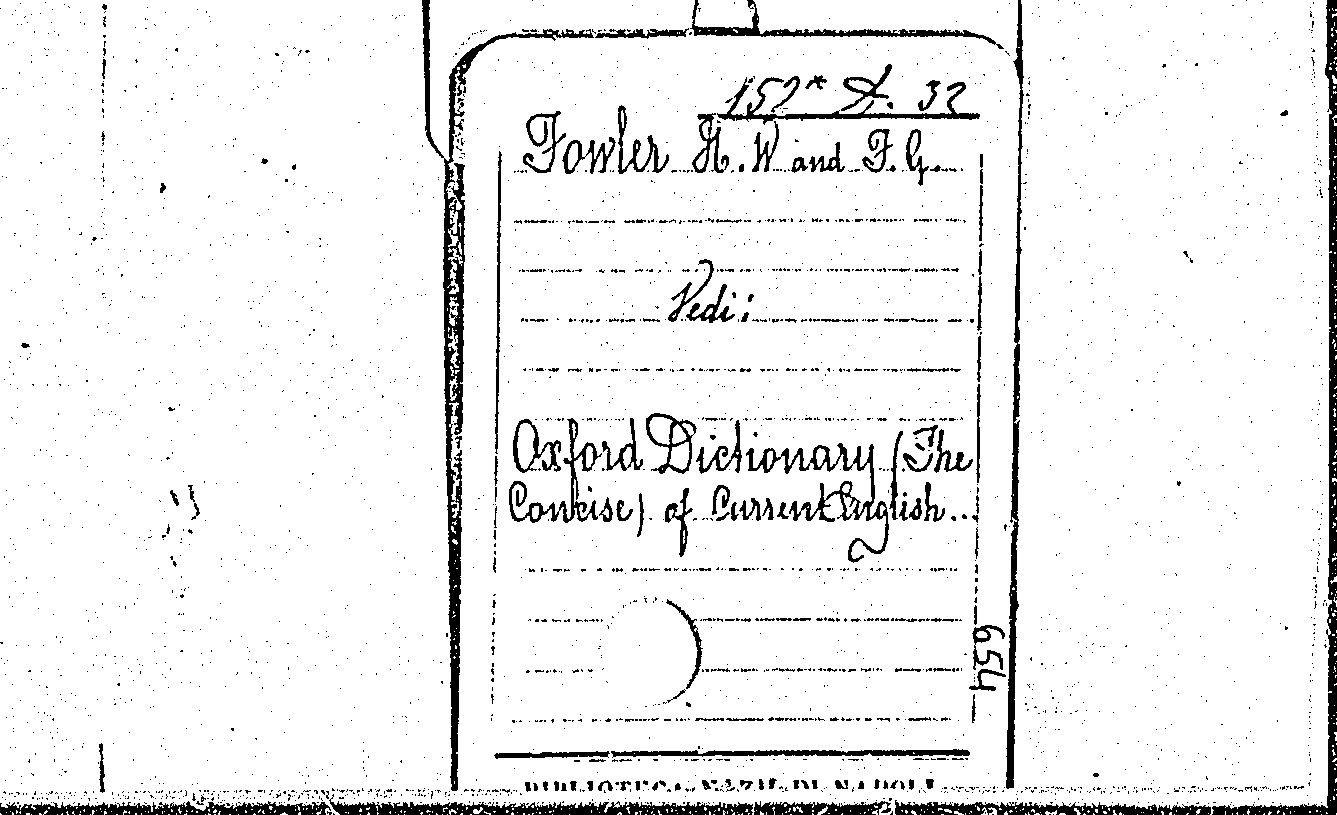 152* A. 32
Fowler H. W and F. G.
Vedi:
Oxford Dictionary (The
Concise) of Current English...
654
BIBLIOTECA NAZ. DI NAPOLI